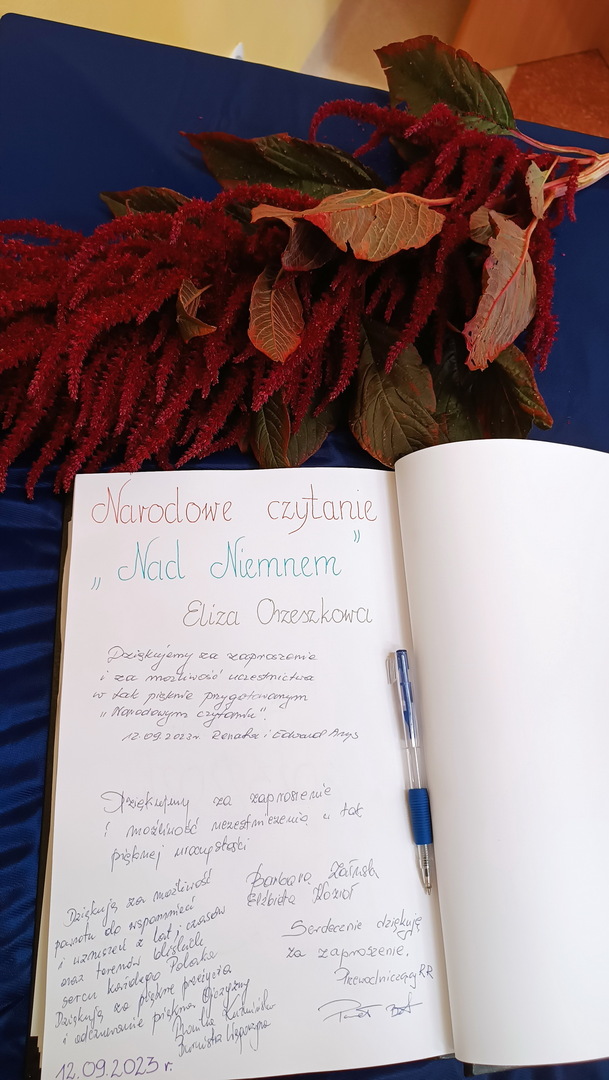 Narodowe czytanie
„Nad Niemnem"
Eliza Orzeszkowa
Dziękujemy za zaproszenie
i za możliwość uczestnictwa
w tak pięknie przygotowanym
„Narodowym czytaniu".
12.09.2023r. Renata i Edward Arys
Dziękujemy za zaproszenie
i możliwość uczestniczenia w tak
pięknej uroczystości
Barbara
Elżbieta Kozioł
Dziękuję za możliwość
powrotu do wspomnień
i wzruszeń z lat i czasów
oraz terenów bliskich
sercu każdego Polaka
Dziękuję za piękne przeżycia
i odczuwanie piękna Ojczyzny
Serdecznie dziękuję
za zaproszenie.
Przewodniczący RR
12.09.2023 r.